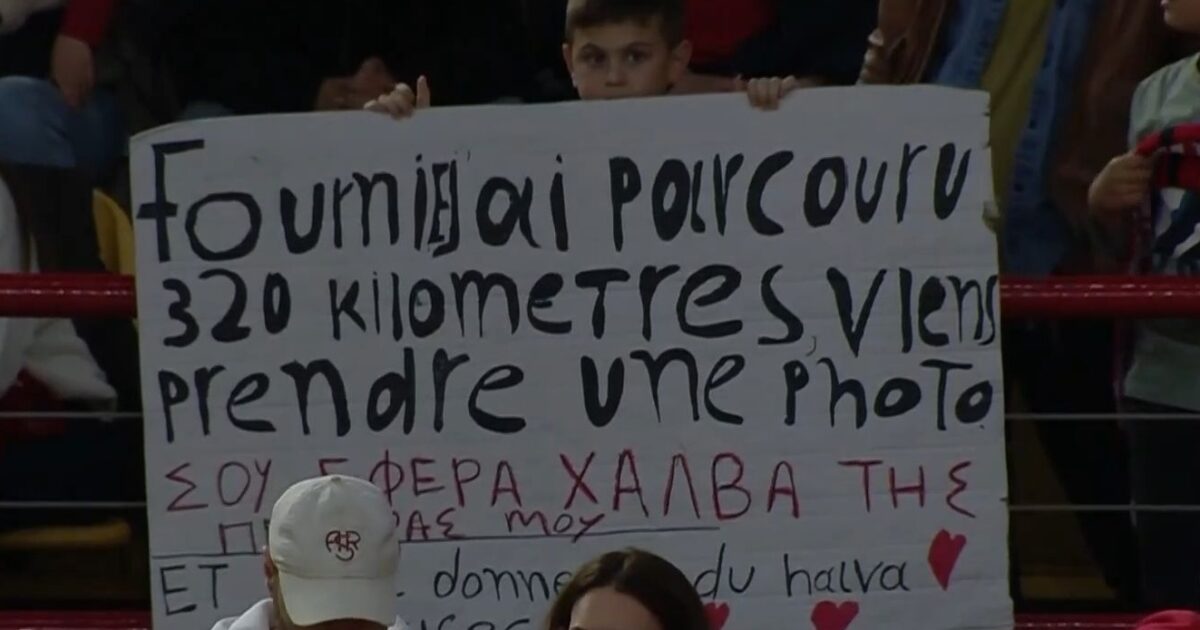 Fournier ai parcouru
320 kilometres, viens
prendre une photo
ΣΟΥ ΕΦΕΡΑ ΧΑΛΒΑ ΤΗΣ
ΜΟΥ
ET donne du halva